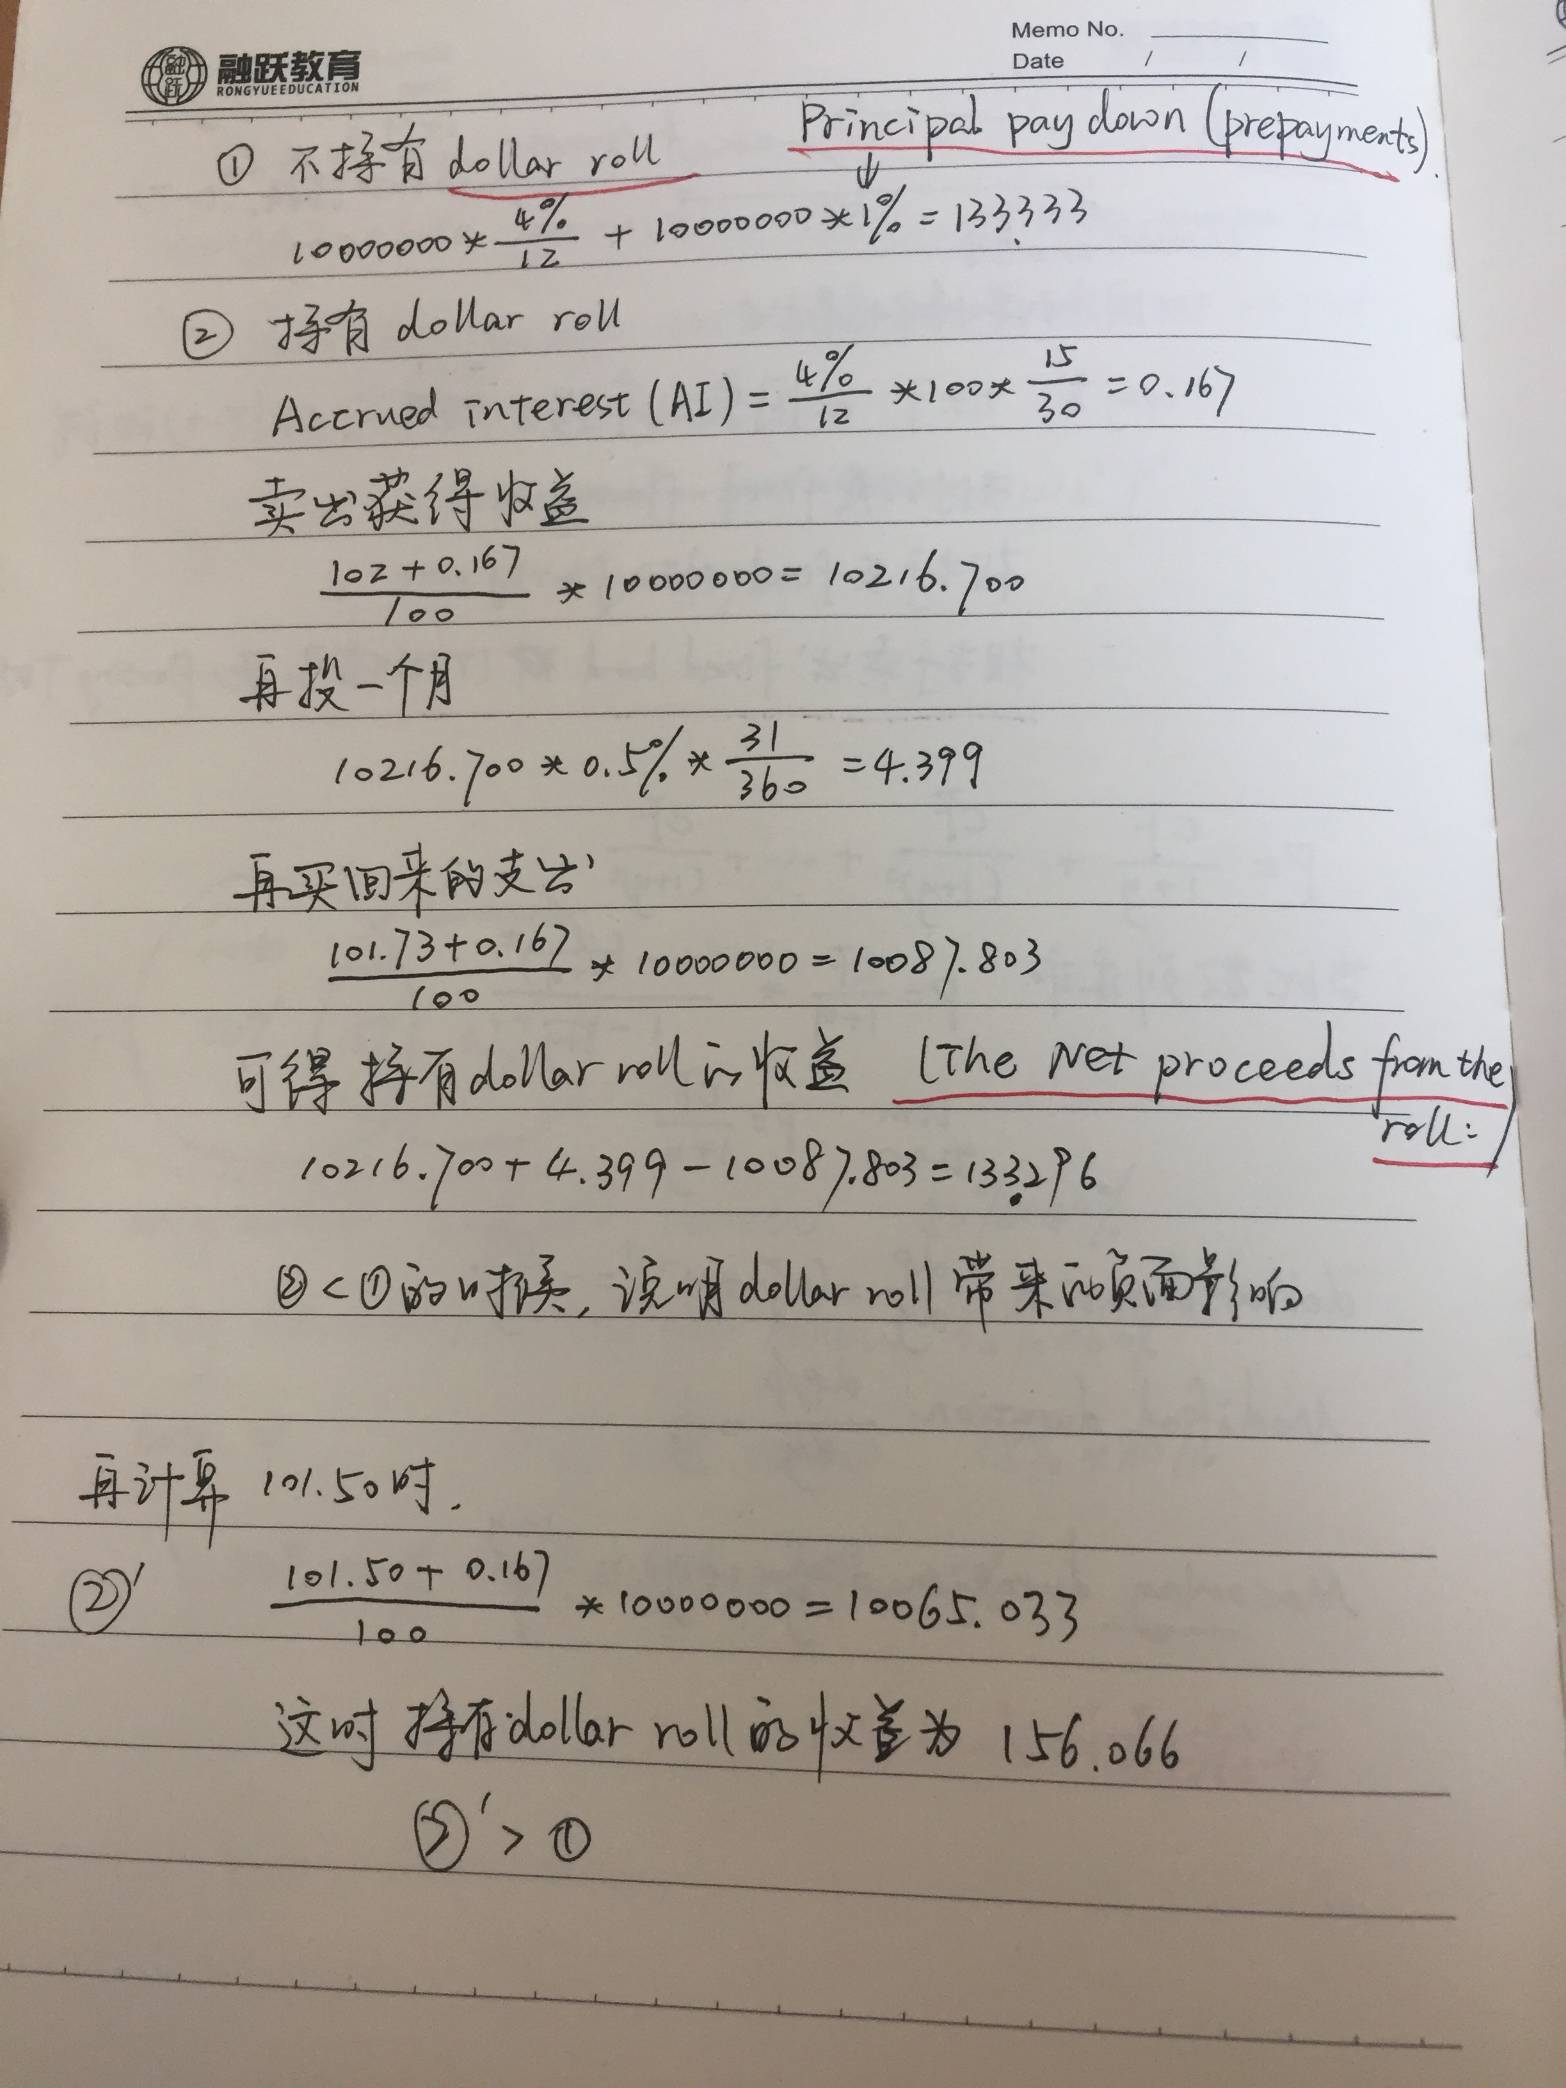 Memo No.
Date / /
融跃教育
RONGYUEEDUCATION
① 不持有 dollar roll
Principal pay down (prepayments).
↓
10000000 * 4%/12 + 10000000 * 1% = 133,333
② 持有 dollar roll
Accrued interest (AI) = 4%/12 * 100 * 15/30 = 0.167
卖出获得收益
(102 + 0.167)/100 * 10000000 = 10216.700
再投一个月
10216.700 * 0.5% * 31/360 = 4.399
再买回来的支出
(101.73 + 0.167)/100 * 10000000 = 10087.803
可得持有 dollar roll 的收益 (The Net proceeds from the
roll:)
10216.700 + 4.399 - 10087.803 = 133.296
② < ① 的时候, 说明 dollar roll 带来的负面影响
再计算 101.50 时.
②' (101.50 + 0.167)/100 * 10000000 = 10065.033
这时 持有 dollar roll 的收益为 156.066
②' > ①